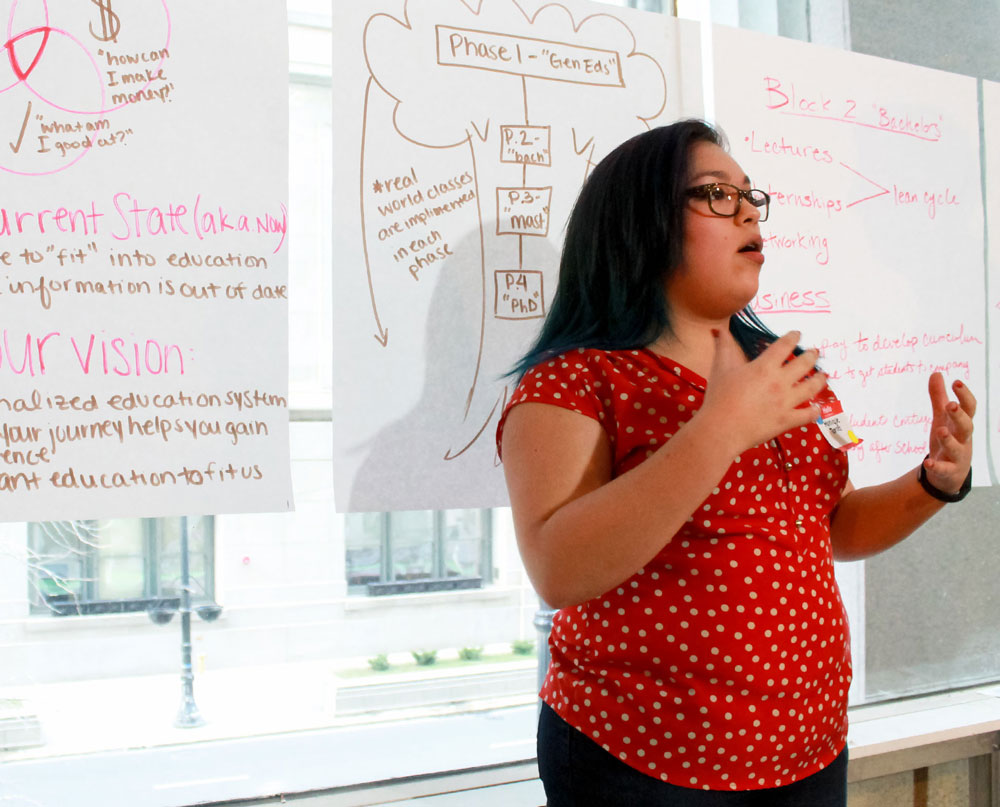 $
"how can
I make
money?"
"what am
I good at?"
urrent State (a.k.a. Now)
e to "fit" into education
information is out of date
our vision:
nalized education system
your journey helps you gain
ence
ant education to fit us
Phase 1 - "Gen Eds"
P.2-
"bach"
P.3-
"mast"
P.4
"PhD"
*real
world classes
are implimented
in each
phase
Block 2 "Bachelors"
*Lectures
ternships
lean cycle
tworking
usiness
pay to develop curriculum
to get students to company
after school